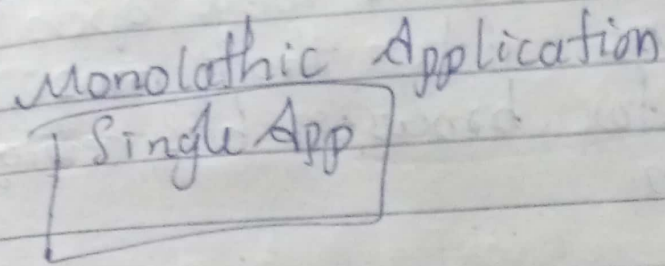 Monolathic Application
Single App